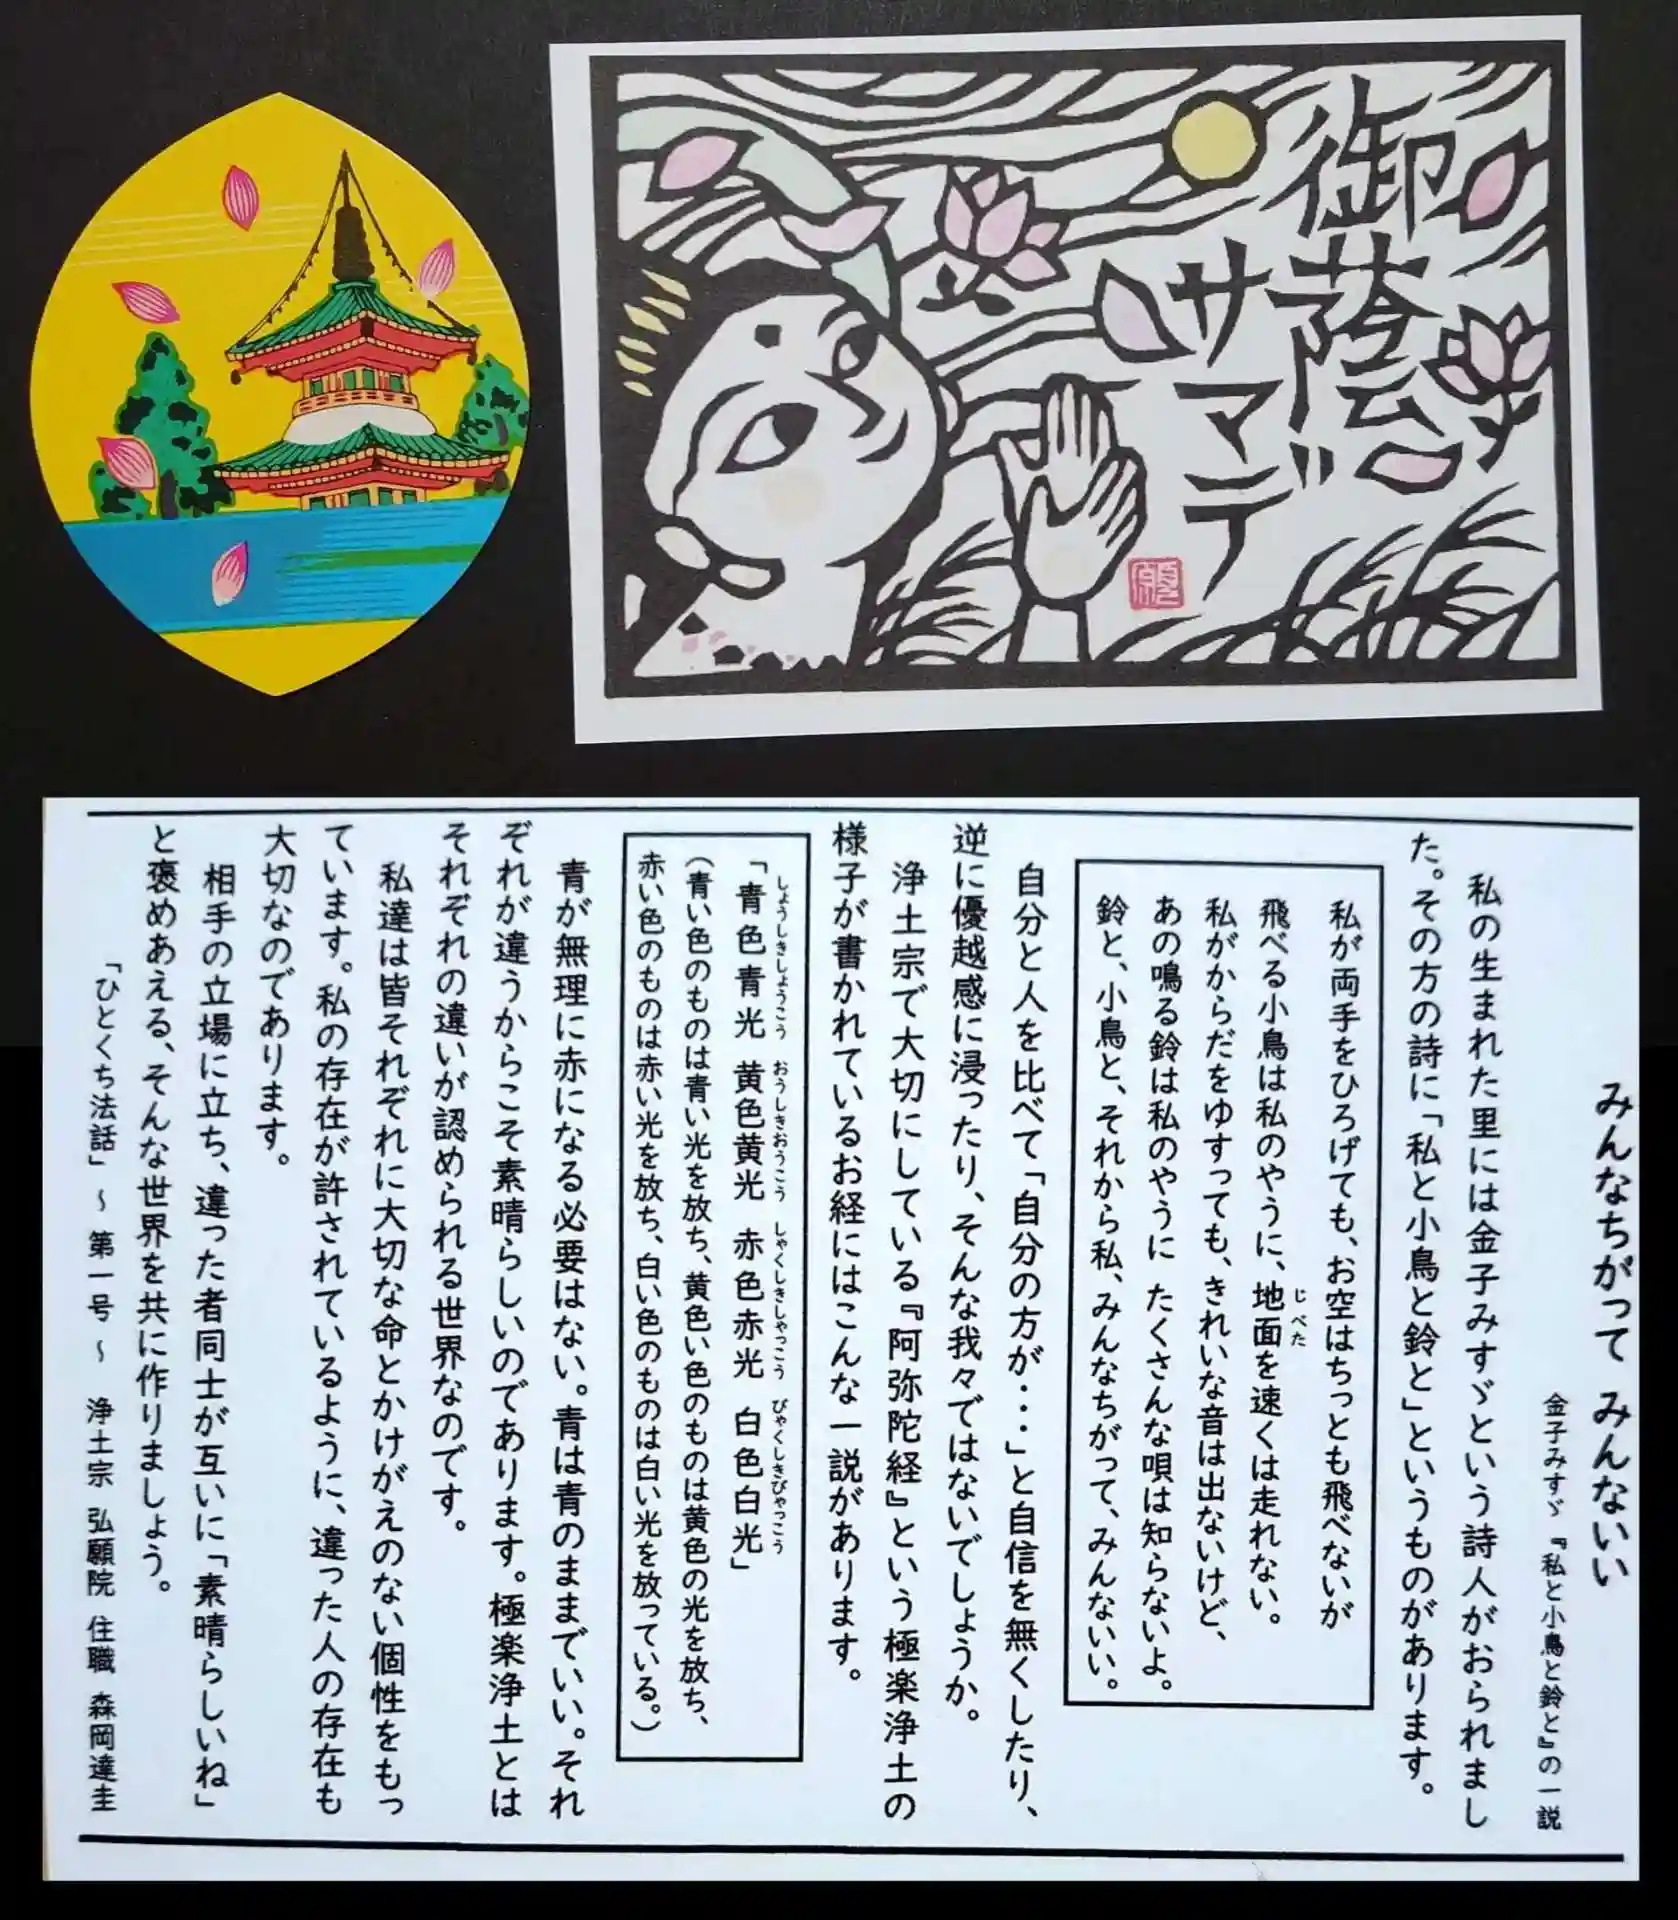 御蔭
サマデ
願
みんなちがって みんないい
金子みすゞ『私と小鳥と鈴と』の一説
私の生まれた里には金子みすゞという詩人がおられまし
た。その方の詩に「私と小鳥と鈴と」というものがあります。
私が両手をひろげても、お空はちっとも飛べないが
飛べる小鳥は私のやうに、地面を速くは走れない。
じべた
私がからだをゆすっても、きれいな音は出ないけど、
あの鳴る鈴は私のやうに たくさんな唄は知らないよ。
鈴と、小鳥と、それから私、みんなちがって、みんないい。
自分と人を比べて「自分の方が・・・」と自信を無くしたり、
逆に優越感に浸ったり、そんな我々ではないでしょうか。
浄土宗で大切にしている『阿弥陀経』という極楽浄土の
様子が書かれているお経にはこんな一説があります。
しょうしきしょうこう おうしきおうこう しゃくしきしゃっこう びゃくしきびゃっこう
「青色青光 黄色黄光 赤色赤光 白色白光」
(青い色のものは青い光を放ち、黄色い色のものは黄色の光を放ち、
赤い色のものは赤い光を放ち、白い色のものは白い光を放っている。)
青が無理に赤になる必要はない。青は青のままでいい。それ
ぞれが違うからこそ素晴らしいのであります。極楽浄土とは
それぞれの違いが認められる世界なのです。
私達は皆それぞれに大切な命とかけがえのない個性をもっ
ています。私の存在が許されているように、違った人の存在も
大切なのであります。
相手の立場に立ち、違った者同士が互いに「素晴らしいね」
と褒めあえる、そんな世界を共に作りましょう。
「ひとくち法話」 ～ 第一号 ～ 浄土宗 弘願院 住職 森岡達圭